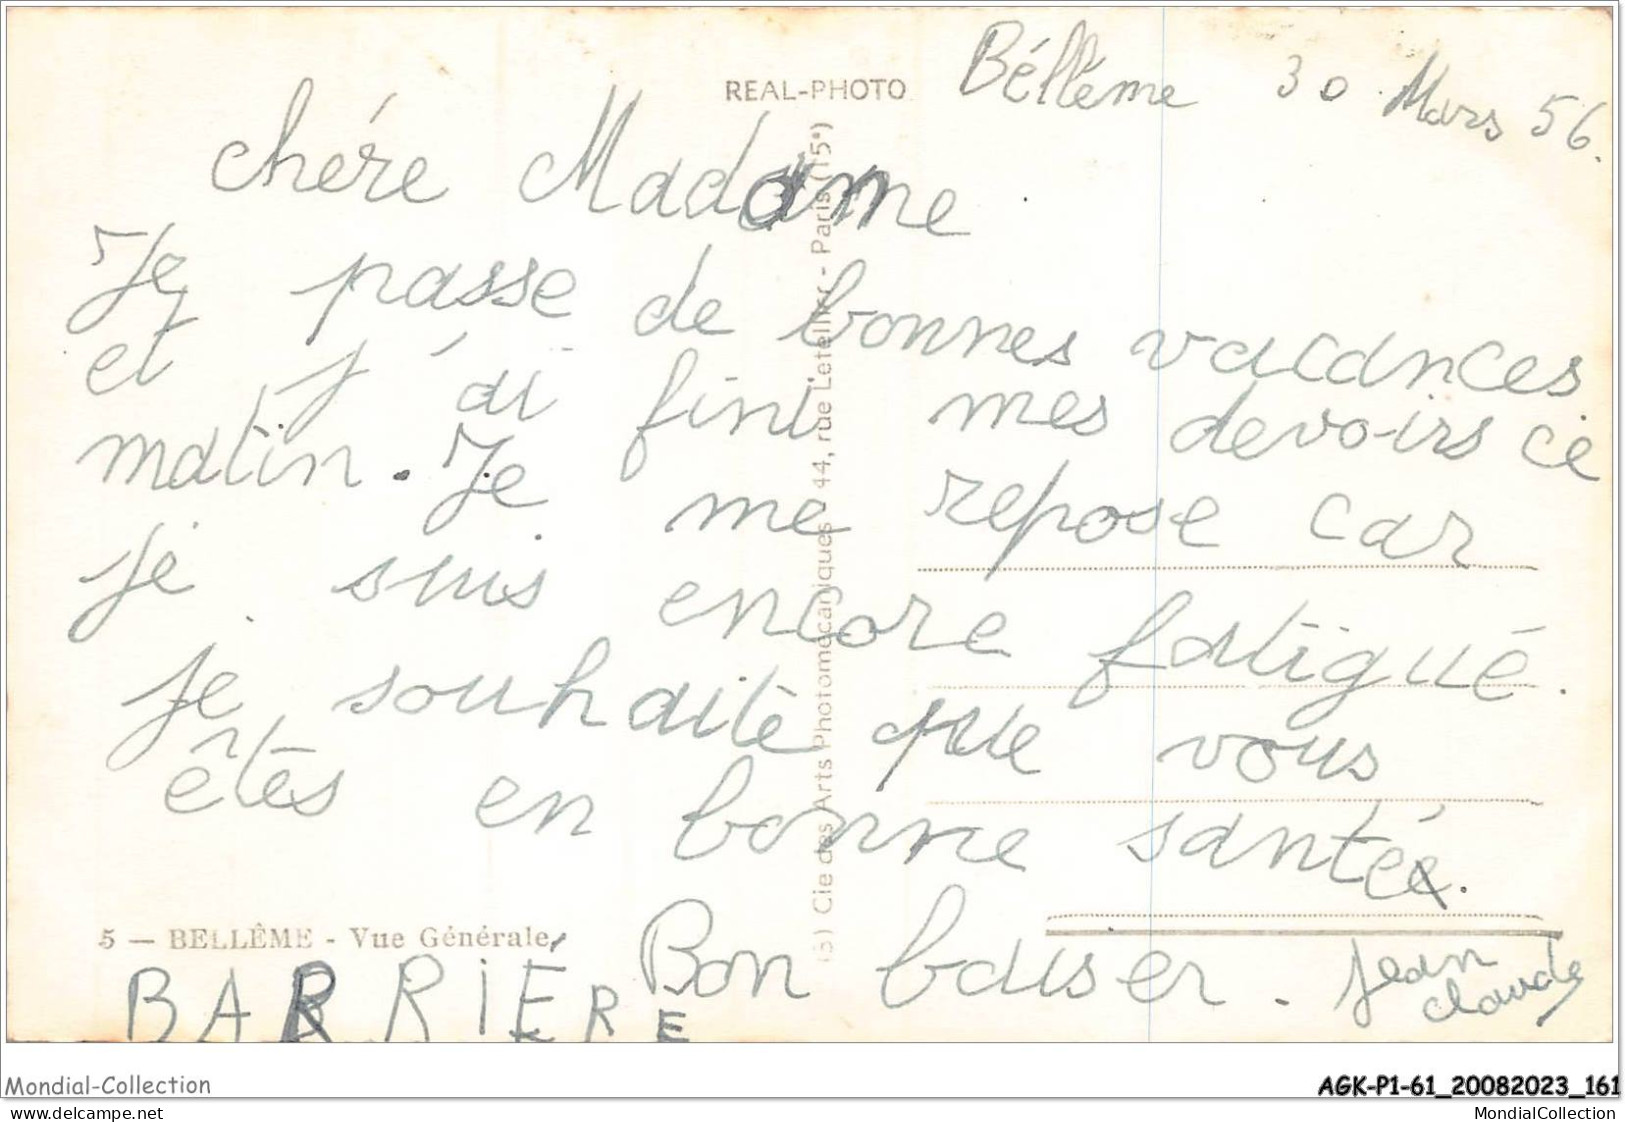 REAL-PHOTO
Béllême 30 Mars 56.
chére Madame
Je passe de bonnes vacances
et j'ai fini mes devoirs ce
matin. Je me repose car
je suis encore fatigué.
Je souhaite que vous
êtes en bonne santée.
Bon baiser. Jean
claude
5 — BELLÊME - Vue Générale
BARRIÉRE
(3) Cie des Arts Photomécaniques - 44, rue Letellier - Paris (15e)
Mondial-Collection
AGK-P1-61_20082023_161
delcampe.net
MondialCollection